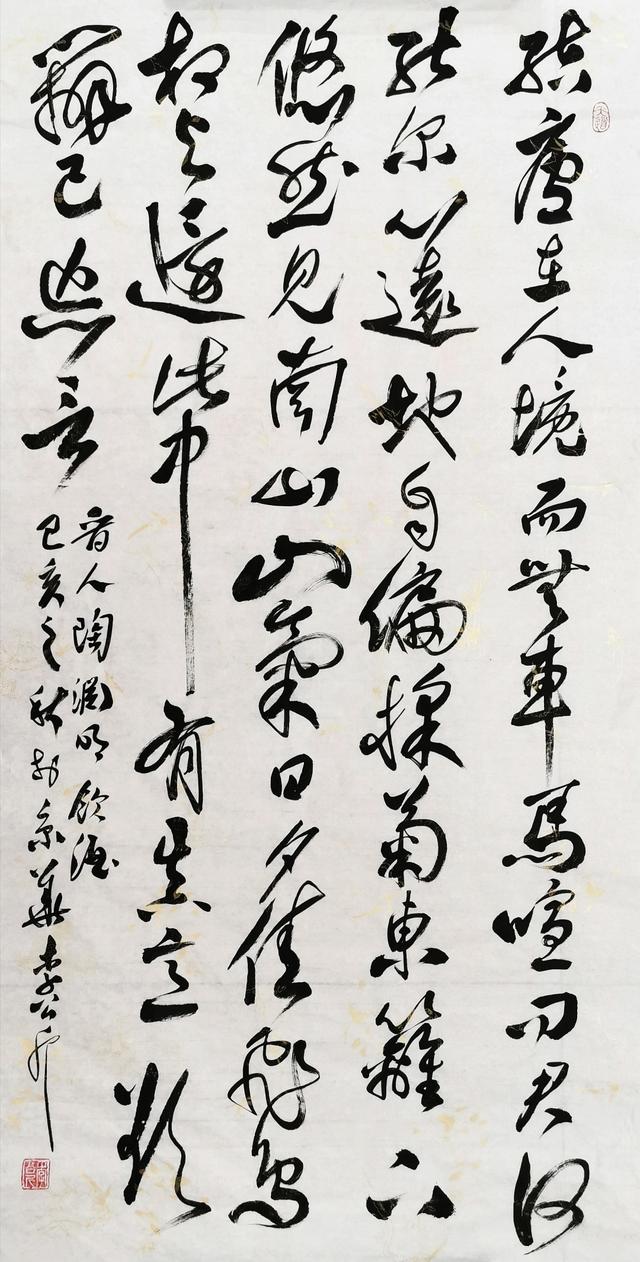 結廬在人境而無車馬喧问君何
能尔心遠地自偏採菊東籬下
悠然見南山山氣日夕佳飛鳥
相与還此中有真意欲
辯已忘言
晋人陶渊明飲酒
己亥之秋於京華李